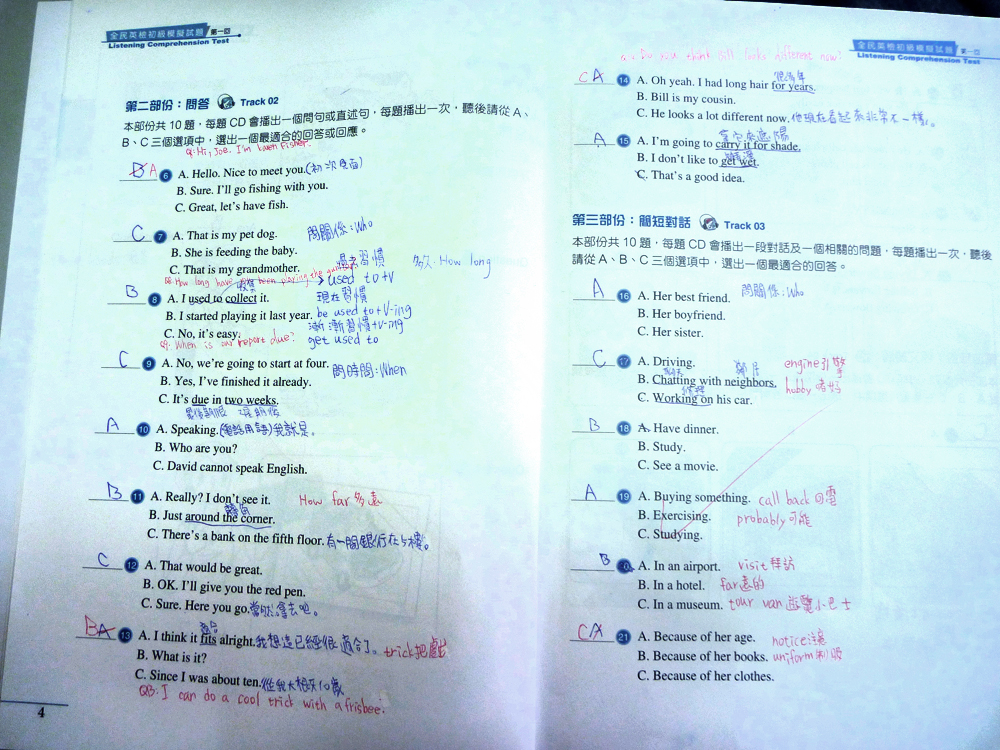 全民英檢初級模擬試題 第一回
Listening Comprehension Test
第二部份：問答 Track 02
本部份共 10 題，每題 CD 會播出一個問句或直述句，每題播出一次，聽後請從 A、
B、C 三個選項中，選出一個最適合的回答或回應。
Q: Hi, Joe. I'm Gwen Fisher.
A 6 A. Hello. Nice to meet you.(初次見面)
B. Sure. I'll go fishing with you.
C. Great, let's have fish.
C 7 A. That is my pet dog. 問關係：Who
B. She is feeding the baby.
C. That is my grandmother. 過去習慣 多久：How long
Q8: How long have you been playing the guitar? → used to+V
收集
B 8 A. I used to collect it. 現在習慣
B. I started playing it last year. be used to+V-ing
C. No, it's easy. 漸漸習慣+V-ing
Q9: When is our report due? get used to
C 9 A. No, we're going to start at four. 問時間：When
B. Yes, I've finished it already.
C. It's due in two weeks.
最後期限 2星期後
A 10 A. Speaking.(電話用語)我就是。
B. Who are you?
C. David cannot speak English.
B 11 A. Really? I don't see it. How far 多遠
轉角
B. Just around the corner.
C. There's a bank on the fifth floor. 有一間銀行在5樓。
C 12 A. That would be great.
B. OK. I'll give you the red pen.
C. Sure. Here you go. 當然拿去吧。
適合
BA 13 A. I think it fits alright. 我想這已經很適合了。 trick把戲
B. What is it?
C. Since I was about ten. 從我大概10歲
Q13: I can do a cool trick with a frisbee.
4
全民英檢初級模擬試題 第一回
Listening Comprehension Test
Q14: Do you think Bill looks different now?
很多年
CA 14 A. Oh yeah. I had long hair for years.
B. Bill is my cousin.
C. He looks a lot different now. 他現在看起來非常不一樣。
拿它來遮陽
A 15 A. I'm going to carry it for shade.
B. I don't like to get wet.
C. That's a good idea.
第三部份：簡短對話 Track 03
本部份共 10 題，每題 CD 會播出一段對話及一個相關的問題，每題播出一次，聽後
請從 A、B、C 三個選項中，選出一個最適合的回答。
A 16 A. Her best friend. 問關係：Who
B. Her boyfriend.
C. Her sister.
C 17 A. Driving. 鄰居 engine引擎
聊天
B. Chatting with neighbors. hubby 嗜好
修理
C. Working on his car.
B 18 A. Have dinner.
B. Study.
C. See a movie.
A 19 A. Buying something. call back 回電
B. Exercising. probably可能
C. Studying.
B A. In an airport. visit 拜訪
B. In a hotel. far遠的
C. In a museum. tour van 遊覽小巴士
CA 21 A. Because of her age. notice注意
B. Because of her books. uniform制服
C. Because of her clothes.